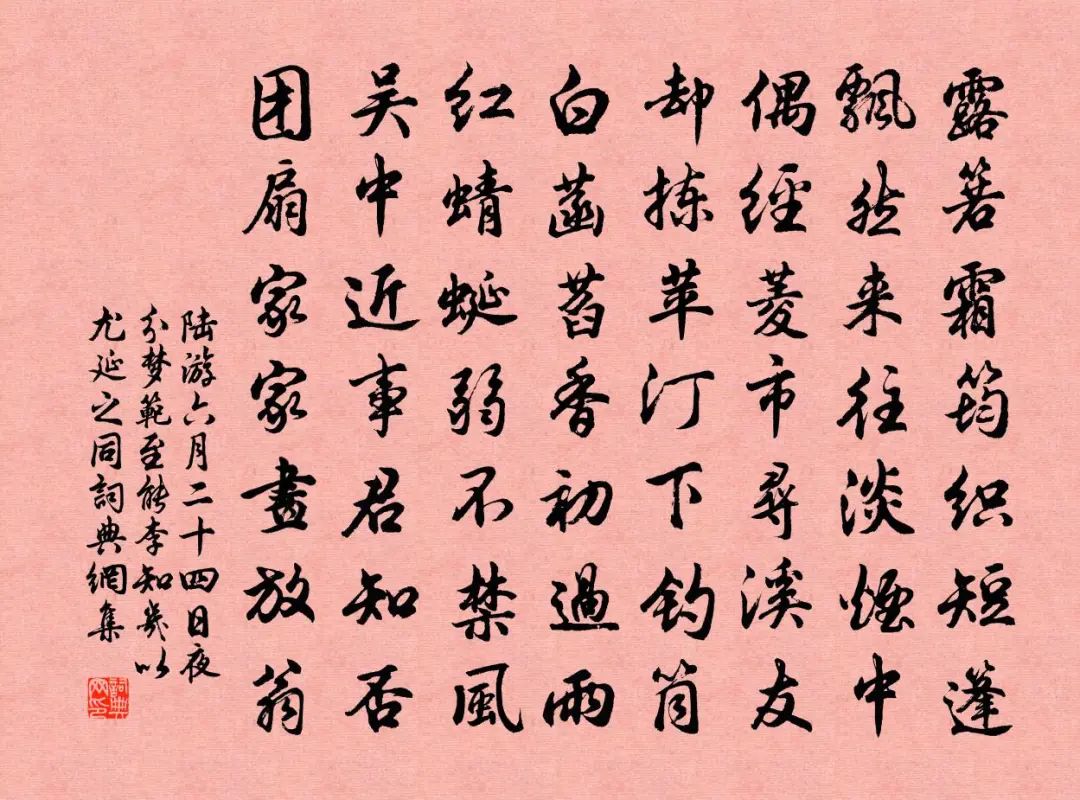 露箬霜筠织短蓬
飄然来往淡煙中
偶經菱市尋溪友
却拣苹汀下钓筒
白菡萏香初過雨
红蜻蜓弱不禁風
吴中近事君知否
团扇家家畫放翁
陆游六月二十四日夜
分梦範至能李知幾以
尤延之同詞典網集